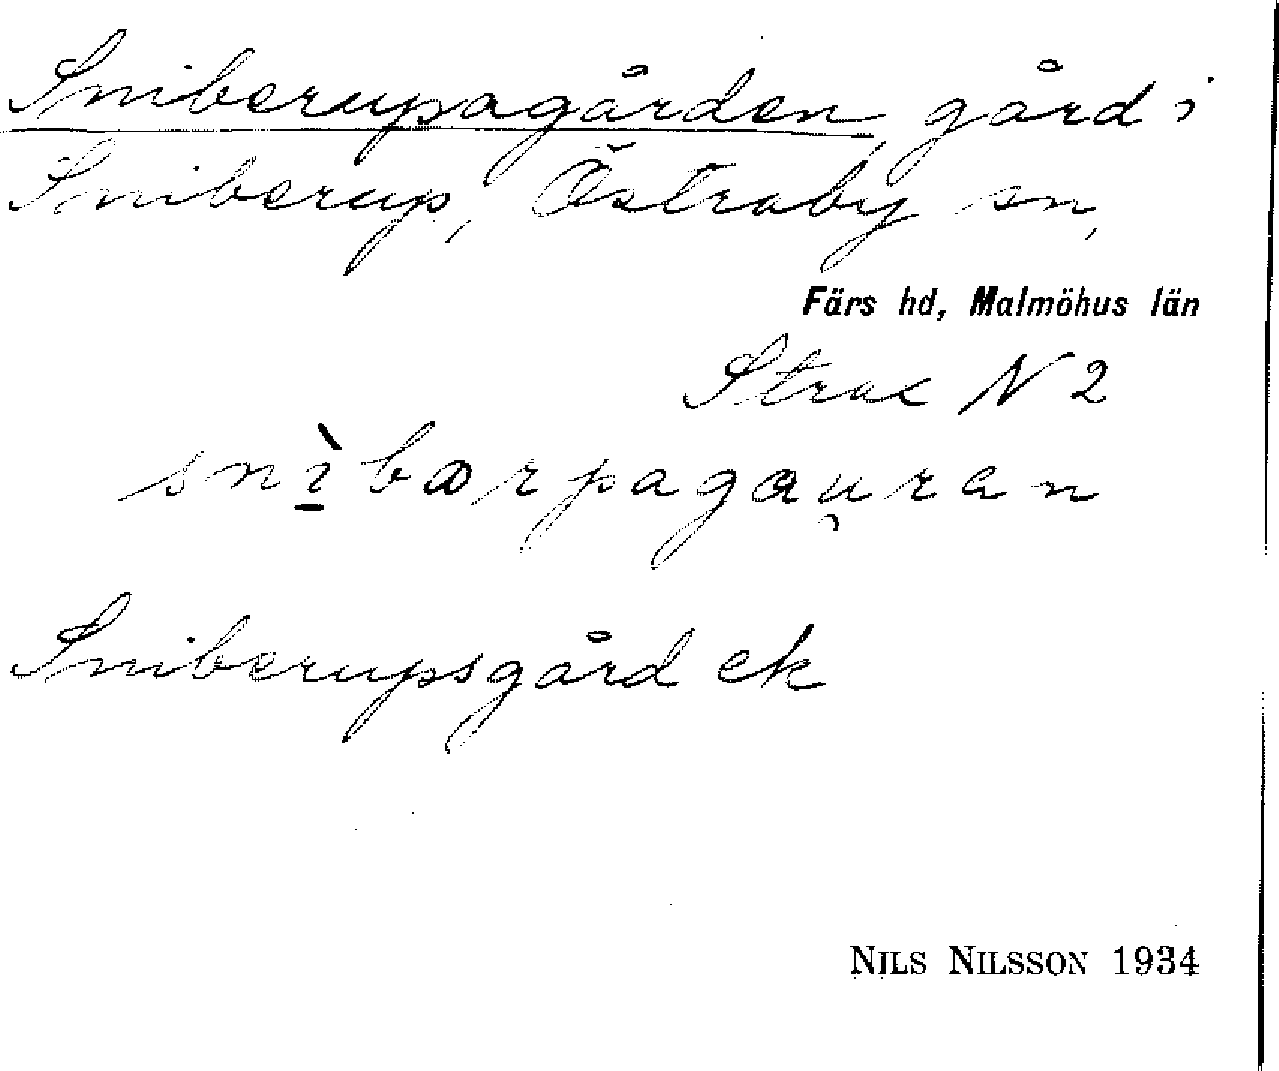 Sniberupagården, gård i
Sniberup, Östraby sn,
Färs hd, Malmöhus län
Strac N 2
Sniberupsgård ek
NILS NILSSON 1934